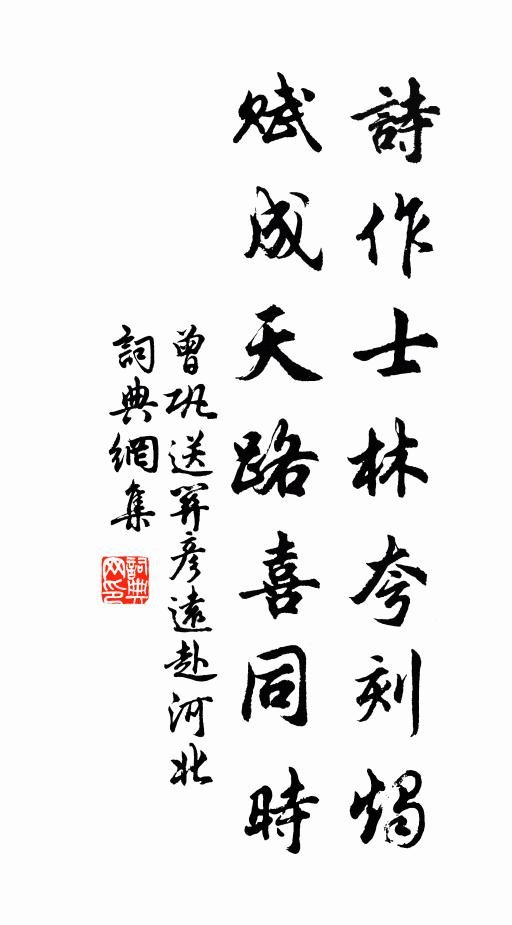 詩作士林夸刻燭
賦成天路喜同時
曾巩送關彥遠赴河北
詞典網集
詞典网印